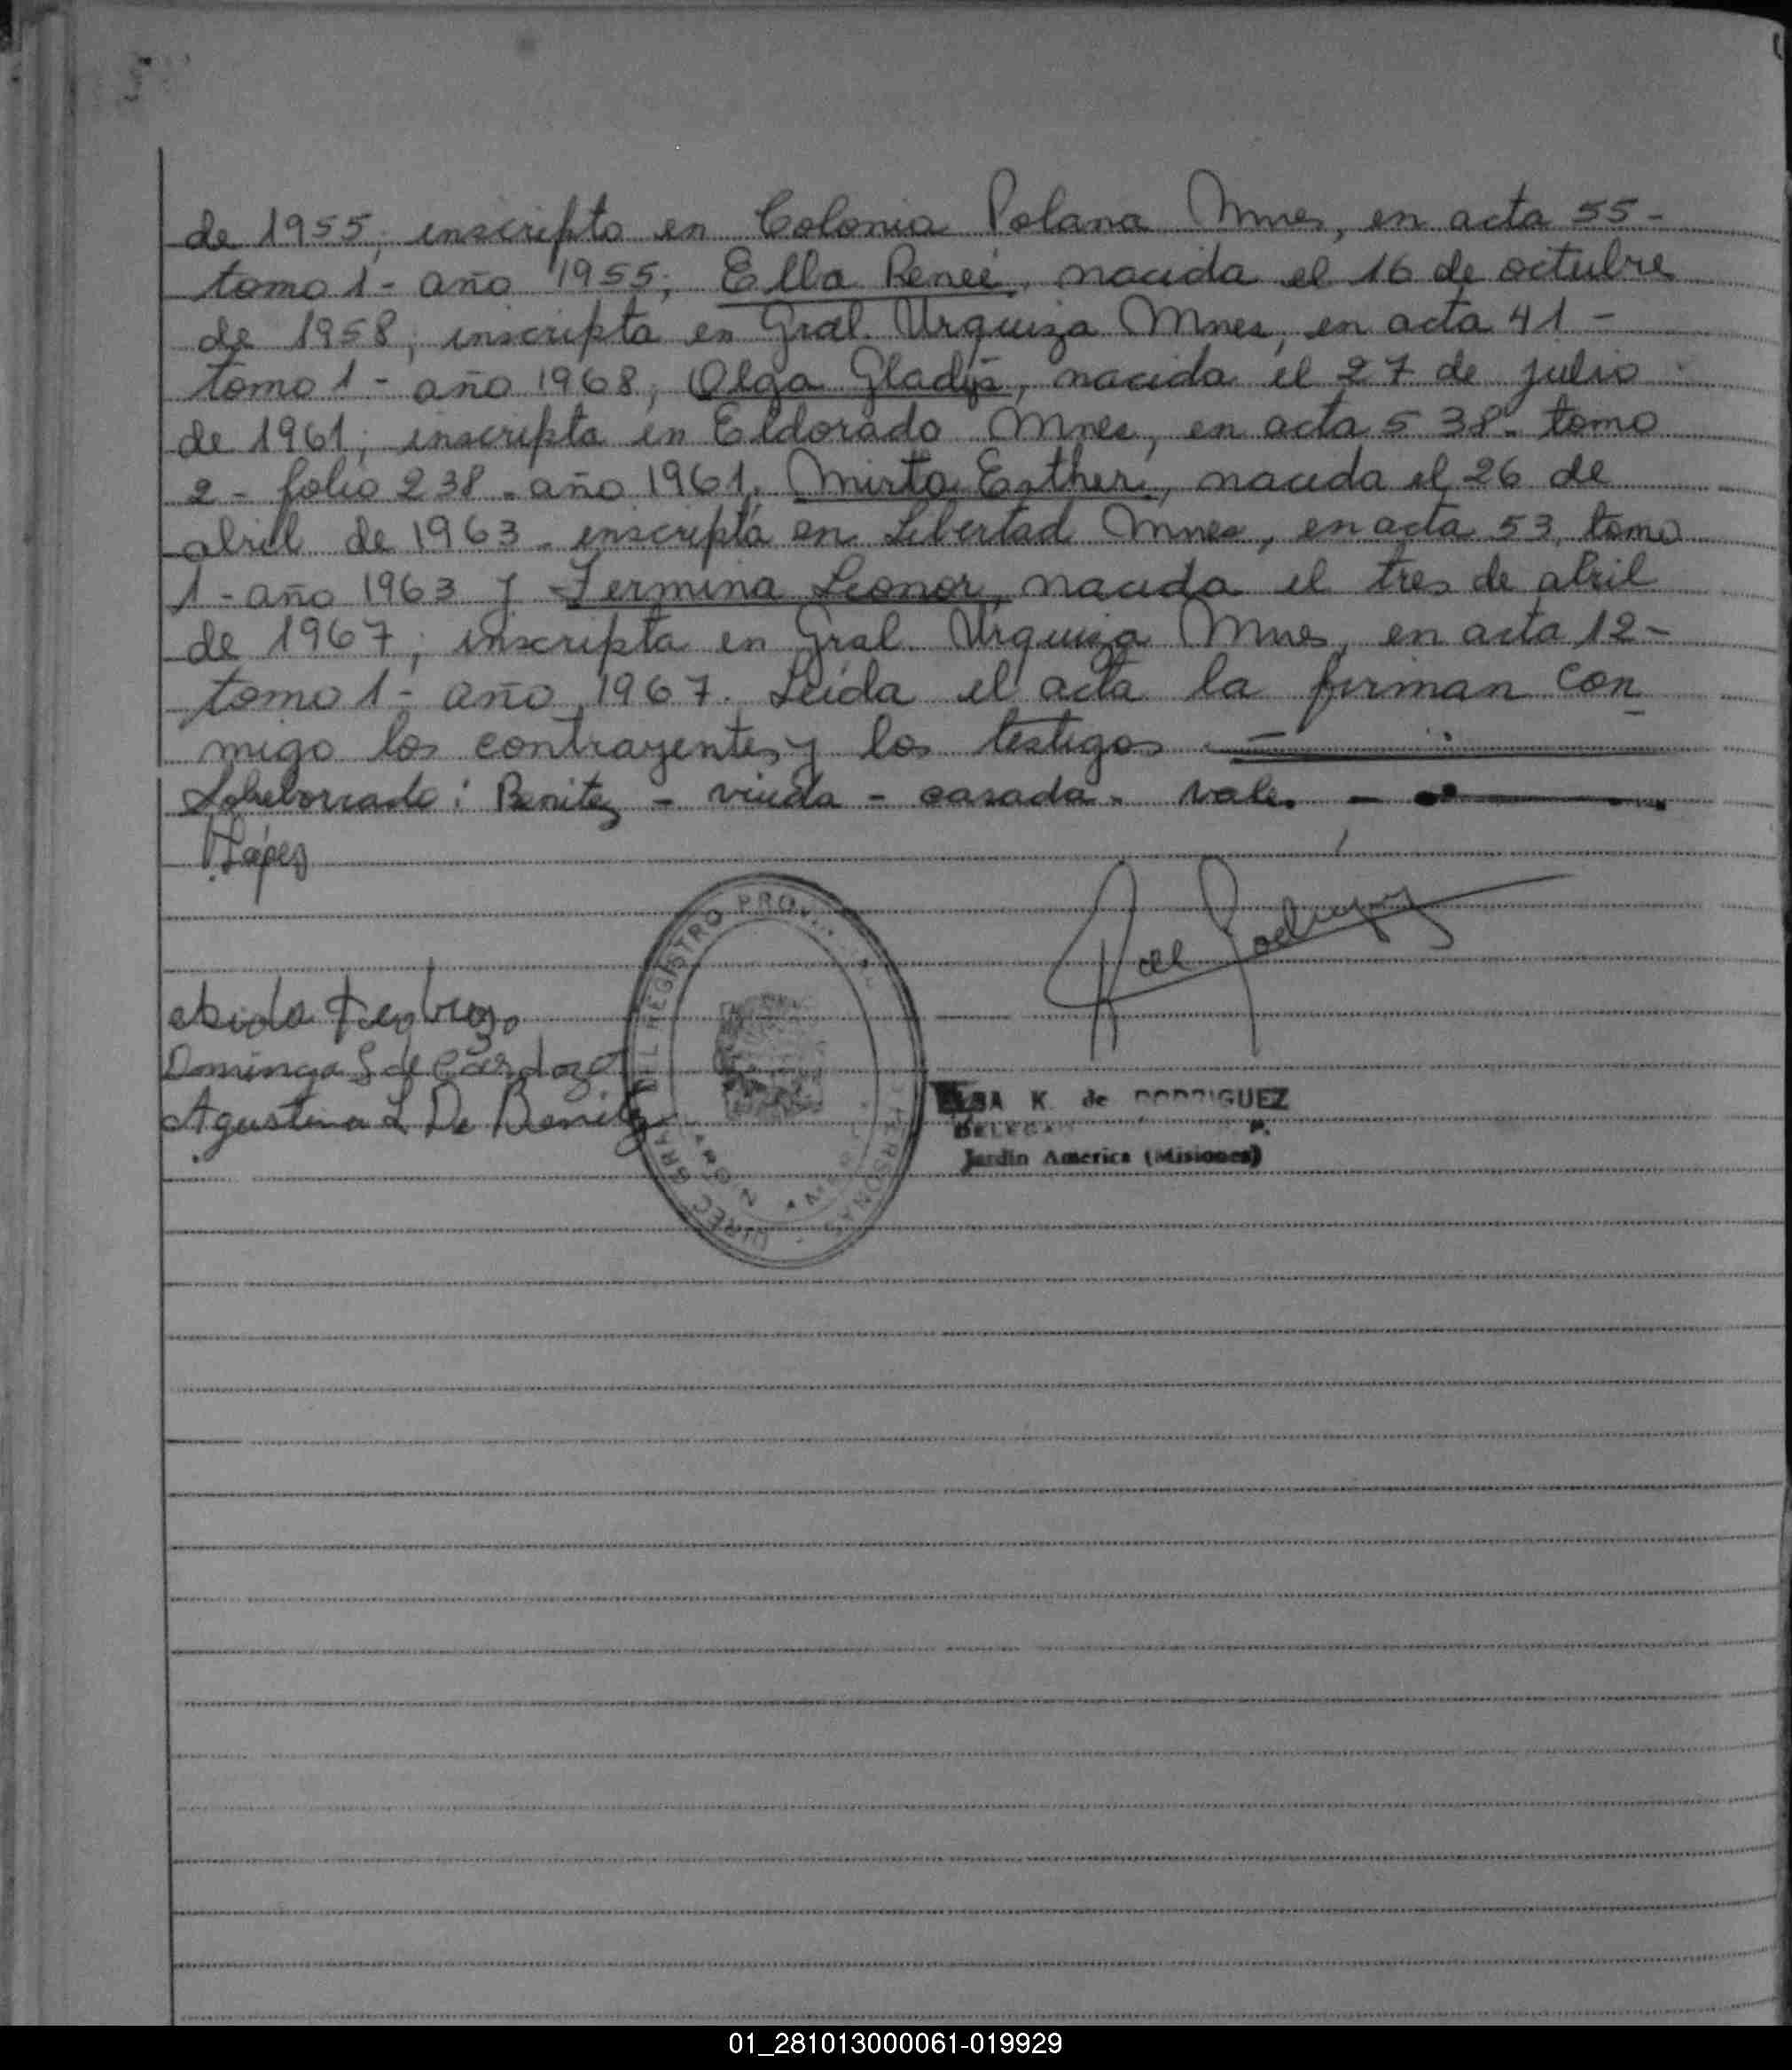 de 1955; inscripto en Colonia Polana Mnes, en acta 55-
tomo 1- año 1955; Ella Reneé, nacida el 16 de octubre
de 1958; inscripta en Gral. Urquiza Mnes, en acta 41-
tomo 1- año 1968; Olga Gladys, nacida el 27 de julio
de 1961; inscripta en Eldorado Mnes, en acta 538- tomo
2- folio 238- año 1961. Mirta Esther, nacida el 26 de
abril de 1963- inscripta en Libertad Mnes, en acta 53, tomo
1- año 1963 y Fermina Leonor, nacida el tres de abril
de 1967; inscripta en Gral Urquiza Mnes, en acta 12-
tomo 1- año 1967. Leída el acta la firman con
migo los contrayentes y los testigos
Sobreborrado: Benitez - viuda - casada - vale. -
López
REGISTRO PROV.
Dominga S de Cardozo
Agustina L De Benitez
K. de RODRIGUEZ
Jardin America (Misiones)
01_281013000061-019929